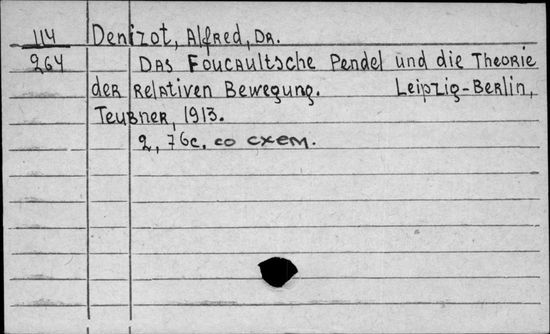 114 Denizot, Alfred, Dr.
264 Das Foucaultsche Pendel und die Theorie
der relativen Bewegung. Leipzig-Berlin,
Teubner, 1913.
2, 76c. со схем.